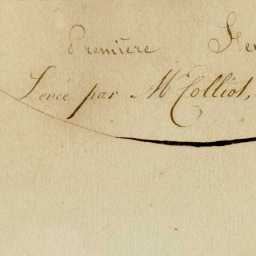 Première
Levée par Mr Colliot,